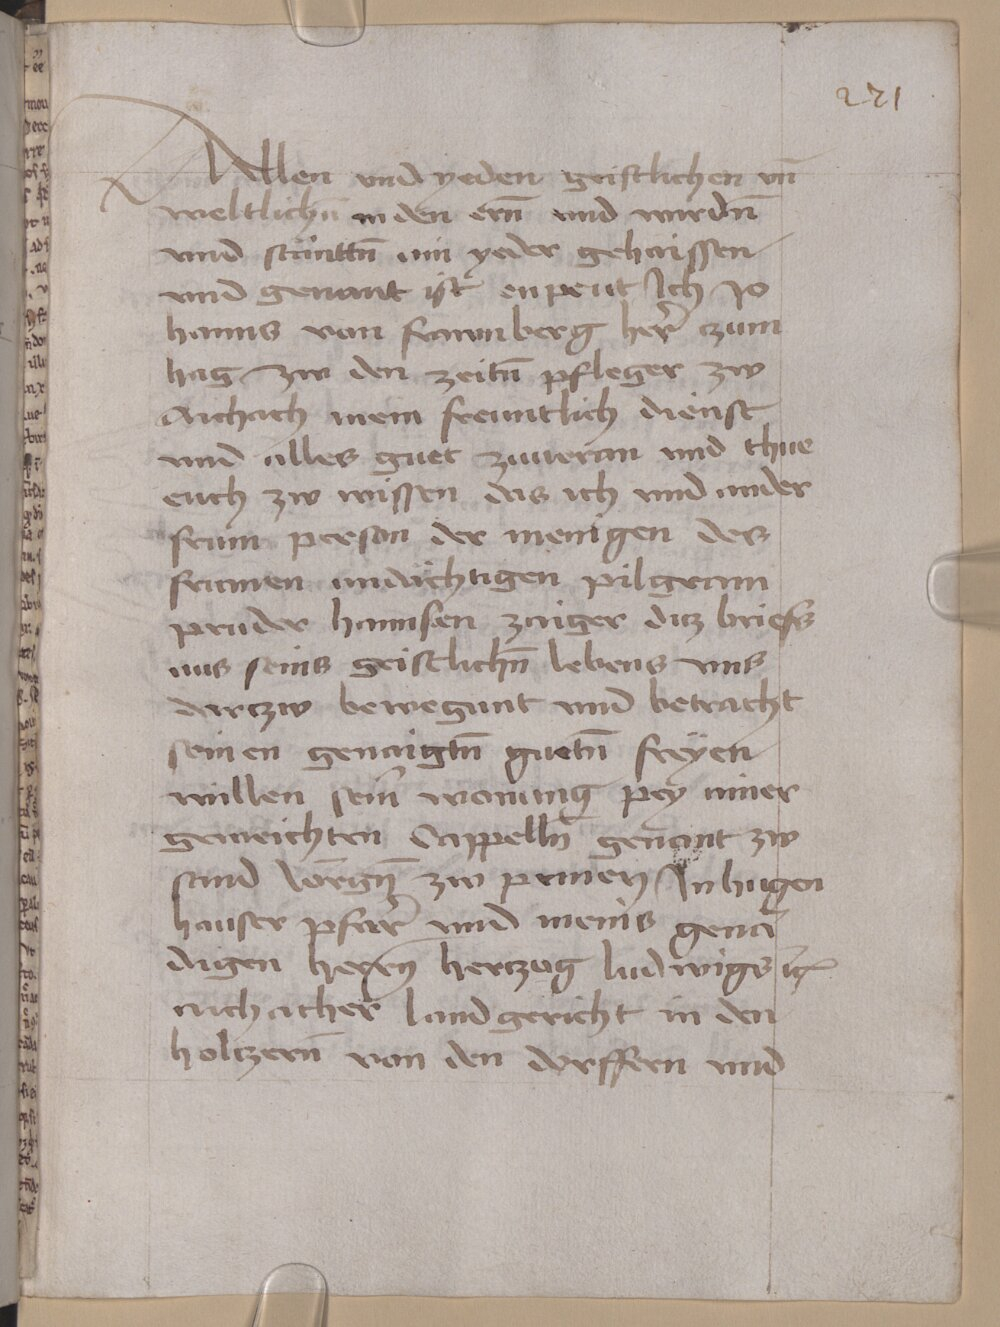 221
Allen vnd yeden geistlichen vn̄
weltlichn̄ in den ern̄ vnd wirdn̄
vnd stänttn̄ nu yeder gehaissen
vnd genant ist enpeut Ich Jo
hanns von frawnberg her̄ zum
hag zw den zeitn̄ pfleger zw
Aichach mein freuntlich dienst
vnd alles guet zuueran vnd thue
euch zw wissen das ich vnd ander
frum person der menigen des
frumen andächtigen pilgram
pruder hannsen zaiger diz briefs
aus seins geistlichn̄ lebens vns
darczw bewegunt vnd betracht
seinen genaigtn̄ guetn̄ freyen
willen sein̄ wonung pey ainer
geweichten Cappelln̄ genant zw
sand zw In hugen
hauser pfarr̄ vnd meins genā
digen herren hertzog ludwigs
aichacher landgericht in den
holtzern̄ von den dorffern vnd